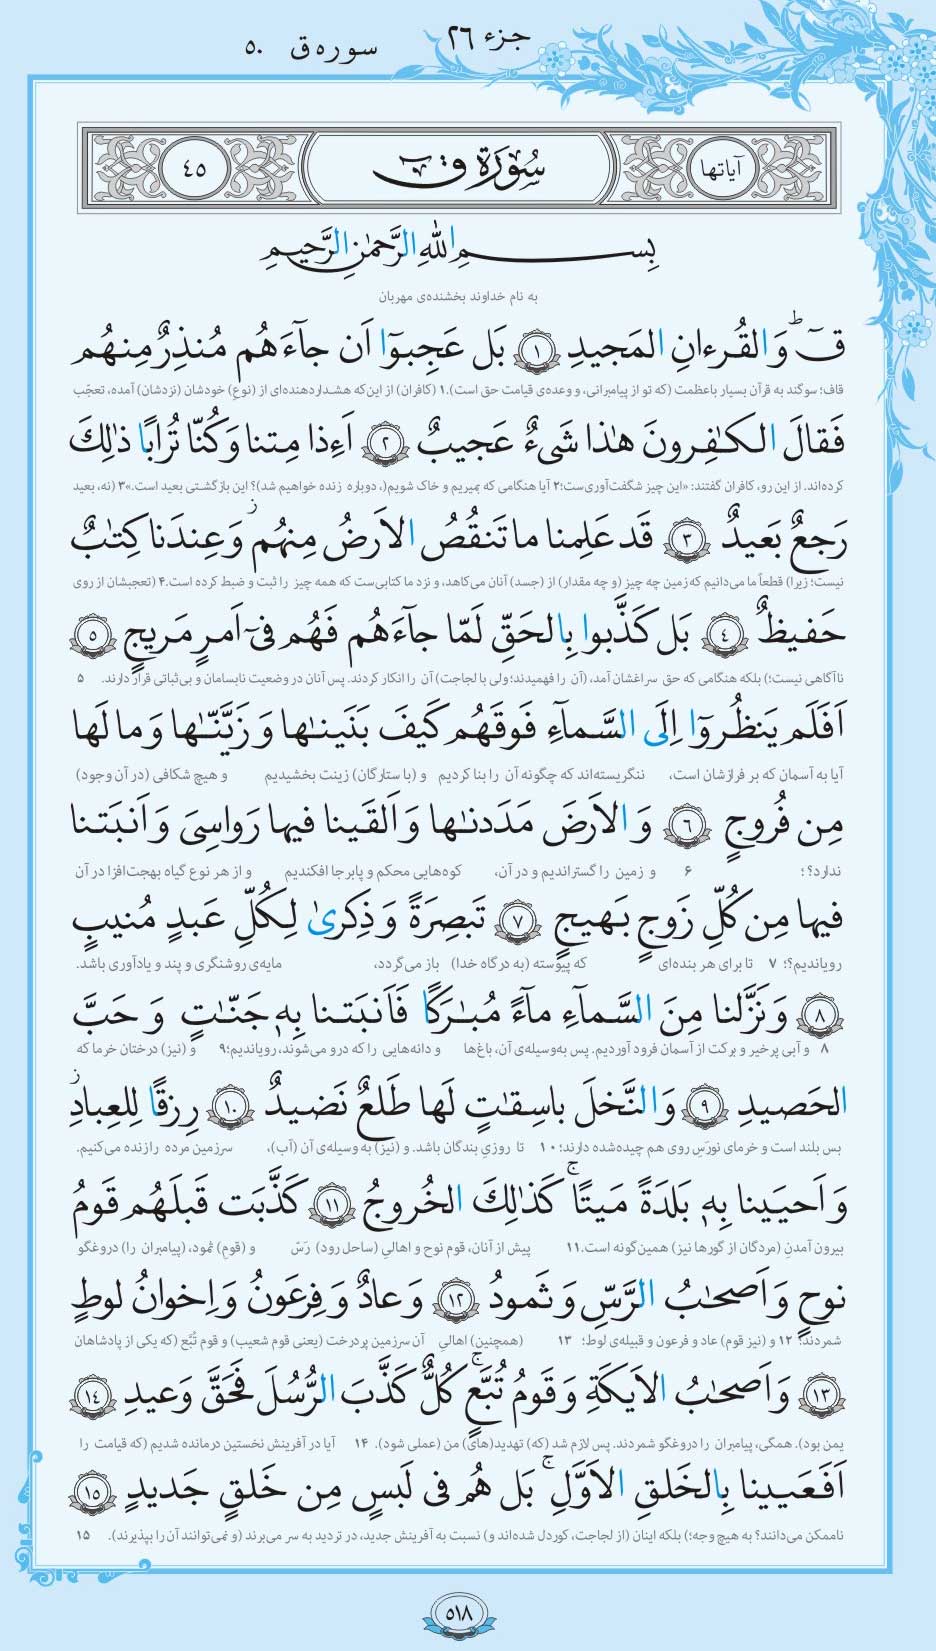 جزء ۲۶
سوره ق ۵۰
آیاتها
سُورَة ق
٤٥
بِسمِ اللهِ الرَّحمٰنِ الرَّحیمِ
به نام خداوند بخشنده‌ی مهربان
قٓ ۚ وَالقُرءانِ المَجیدِ ﴿١﴾ بَل عَجِبوٓا اَن جآءَهُم مُنذِرٌ مِنهُم
قاف؛ سوگند به قرآن بسیار باعظمت (که تو از پیامبرانی، و وعده‌ی قیامت حق است).۱ (کافران) از این‌که هشداردهنده‌ای از (نوع) خودشان (نزدشان) آمده، تعجّب
فَقالَ الکٰفِرونَ هٰذا شَیءٌ عَجیبٌ ﴿٢﴾ اَءِذا مِتنا وَکُنّا تُرابًا ذٰلِكَ
کرده‌اند. از این رو، کافران گفتند: «این چیز شگفت‌آوری‌ست؛۲ آیا هنگامی که بمیریم و خاک شویم(، دوباره زنده خواهیم شد)؟ این بازگشتی بعید است.»۳ (نه، بعید
رَجعٌ بَعیدٌ ﴿٣﴾ قَد عَلِمنا ما تَنقُصُ الاَرضُ مِنهُم ز وَعِندَنا کِتٰبٌ
نیست؛ زیرا) قطعاً ما می‌دانیم که زمین چه چیز (و چه مقدار) از (جسد) آنان می‌کاهد، و نزد ما کتابی‌ست که همه چیز را ثبت و ضبط کرده است.۴ (تعجبشان از روی
حَفیظٌ ﴿٤﴾ بَل کَذَّبوا بِالحَقِّ لَمّا جآءَهُم فَهُم فیٓ اَمرٍ مَریجٍ ﴿٥﴾
ناآگاهی نیست؛) بلکه هنگامی که حق سراغشان آمد، (آن را فهمیدند؛ ولی با لجاجت) آن را انکار کردند. پس آنان در وضعیت نابسامان و بی‌ثباتی قرار دارند. ۵
اَفَلَم یَنظُروٓا اِلَی السَّمآءِ فَوقَهُم کَیفَ بَنَینٰها وَزَیَّنّٰها وَما لَها
آیا به آسمان که بر فرازشان است، ننگریسته‌اند که چگونه آن را بنا کردیم و (با ستارگان) زینت بخشیدیم و هیچ شکافی (در آن وجود)
مِن فُروجٍ ﴿٦﴾ وَالاَرضَ مَدَدنٰها وَاَلقَینا فیها رَواسِیَ وَاَنبَتنا
ندارد؟؛ ۶ و زمین را گستراندیم و در آن، کوه‌هایی محکم و پابرجا افکندیم و از هر نوع گیاه بهجت‌افزا در آن
فیها مِن کُلِّ زَوجٍ بَهیجٍ ﴿٧﴾ تَبصِرَةً وَذِکریٰ لِکُلِّ عَبدٍ مُنیبٍ
رویاندیم؟؛ ۷ تا برای هر بنده‌ای که پیوسته (به درگاه خدا) باز می‌گردد، مایه‌ی روشنگری و پند و یادآوری باشد.
﴿٨﴾ وَنَزَّلنا مِنَ السَّمآءِ مآءً مُبٰرَکًا فَاَنبَتنا بِهٖ جَنّٰتٍ وَحَبَّ
۸ و آبی پرخیر و برکت از آسمان فرود آوردیم. پس به‌وسیله‌ی آن، باغ‌ها و دانه‌هایی را که درو می‌شوند، رویاندیم؛۹ و (نیز) درختان خرما که
الحَصیدِ ﴿٩﴾ وَالنَّخلَ باسِقٰتٍ لَها طَلعٌ نَضیدٌ ﴿١٠﴾ رِزقًا لِلعِبادِ ز
بس بلند است و خرمای نورَسِ روی هم چیده‌شده دارند؛۱۰ تا روزیِ بندگان باشد. و (نیز) به وسیله‌ی آن (آب)، سرزمین مرده را زنده می‌کنیم.
وَاَحیَینا بِهٖ بَلدَةً مَیتًا ۚ کَذٰلِكَ الخُروجُ ﴿١١﴾ کَذَّبَت قَبلَهُم قَومُ
بیرون آمدنِ (مردگان از گورها نیز) همین‌گونه است.۱۱ پیش از آنان، قوم نوح و اهالیِ (ساحل رود) رَسّ و (قوم) ثمود، (پیامبران را) دروغگو
نوحٍ وَاَصحٰبُ الرَّسِّ وَثَمودُ ﴿١٢﴾ وَعادٌ وَفِرعَونُ وَاِخوانُ لوطٍ
شمردند؛ ۱۲ و (نیز قوم) عاد و فرعون و قبیله‌ی لوط؛ ۱۳ (همچنین) اهالیِ آن سرزمین پردرخت (یعنی قوم شعیب) و قوم تُبَّع (که یکی از پادشاهان
﴿١٣﴾ وَاَصحٰبُ الاَیکَةِ وَقَومُ تُبَّعٍ ۚ کُلٌّ کَذَّبَ الرُّسُلَ فَحَقَّ وَعیدِ ﴿١٤﴾
یمن بود). همگی، پیامبران را دروغگو شمردند. پس لازم شد (که) تهدید(های) من (عملی شود). ۱۴ آیا در آفرینش نخستین درمانده شدیم (که قیامت را
اَفَعَیینا بِالخَلقِ الاَوَّلِ ۚ بَل هُم فی لَبسٍ مِن خَلقٍ جَدیدٍ ﴿١٥﴾
ناممکن می‌دانند؟ به هیچ وجه؛) بلکه اینان (از لجاجت، کوردل شده‌اند و) نسبت به آفرینش جدید، در تردید به سر می‌برند (و نمی‌توانند آن را بپذیرند). ۱۵
۵۱۸